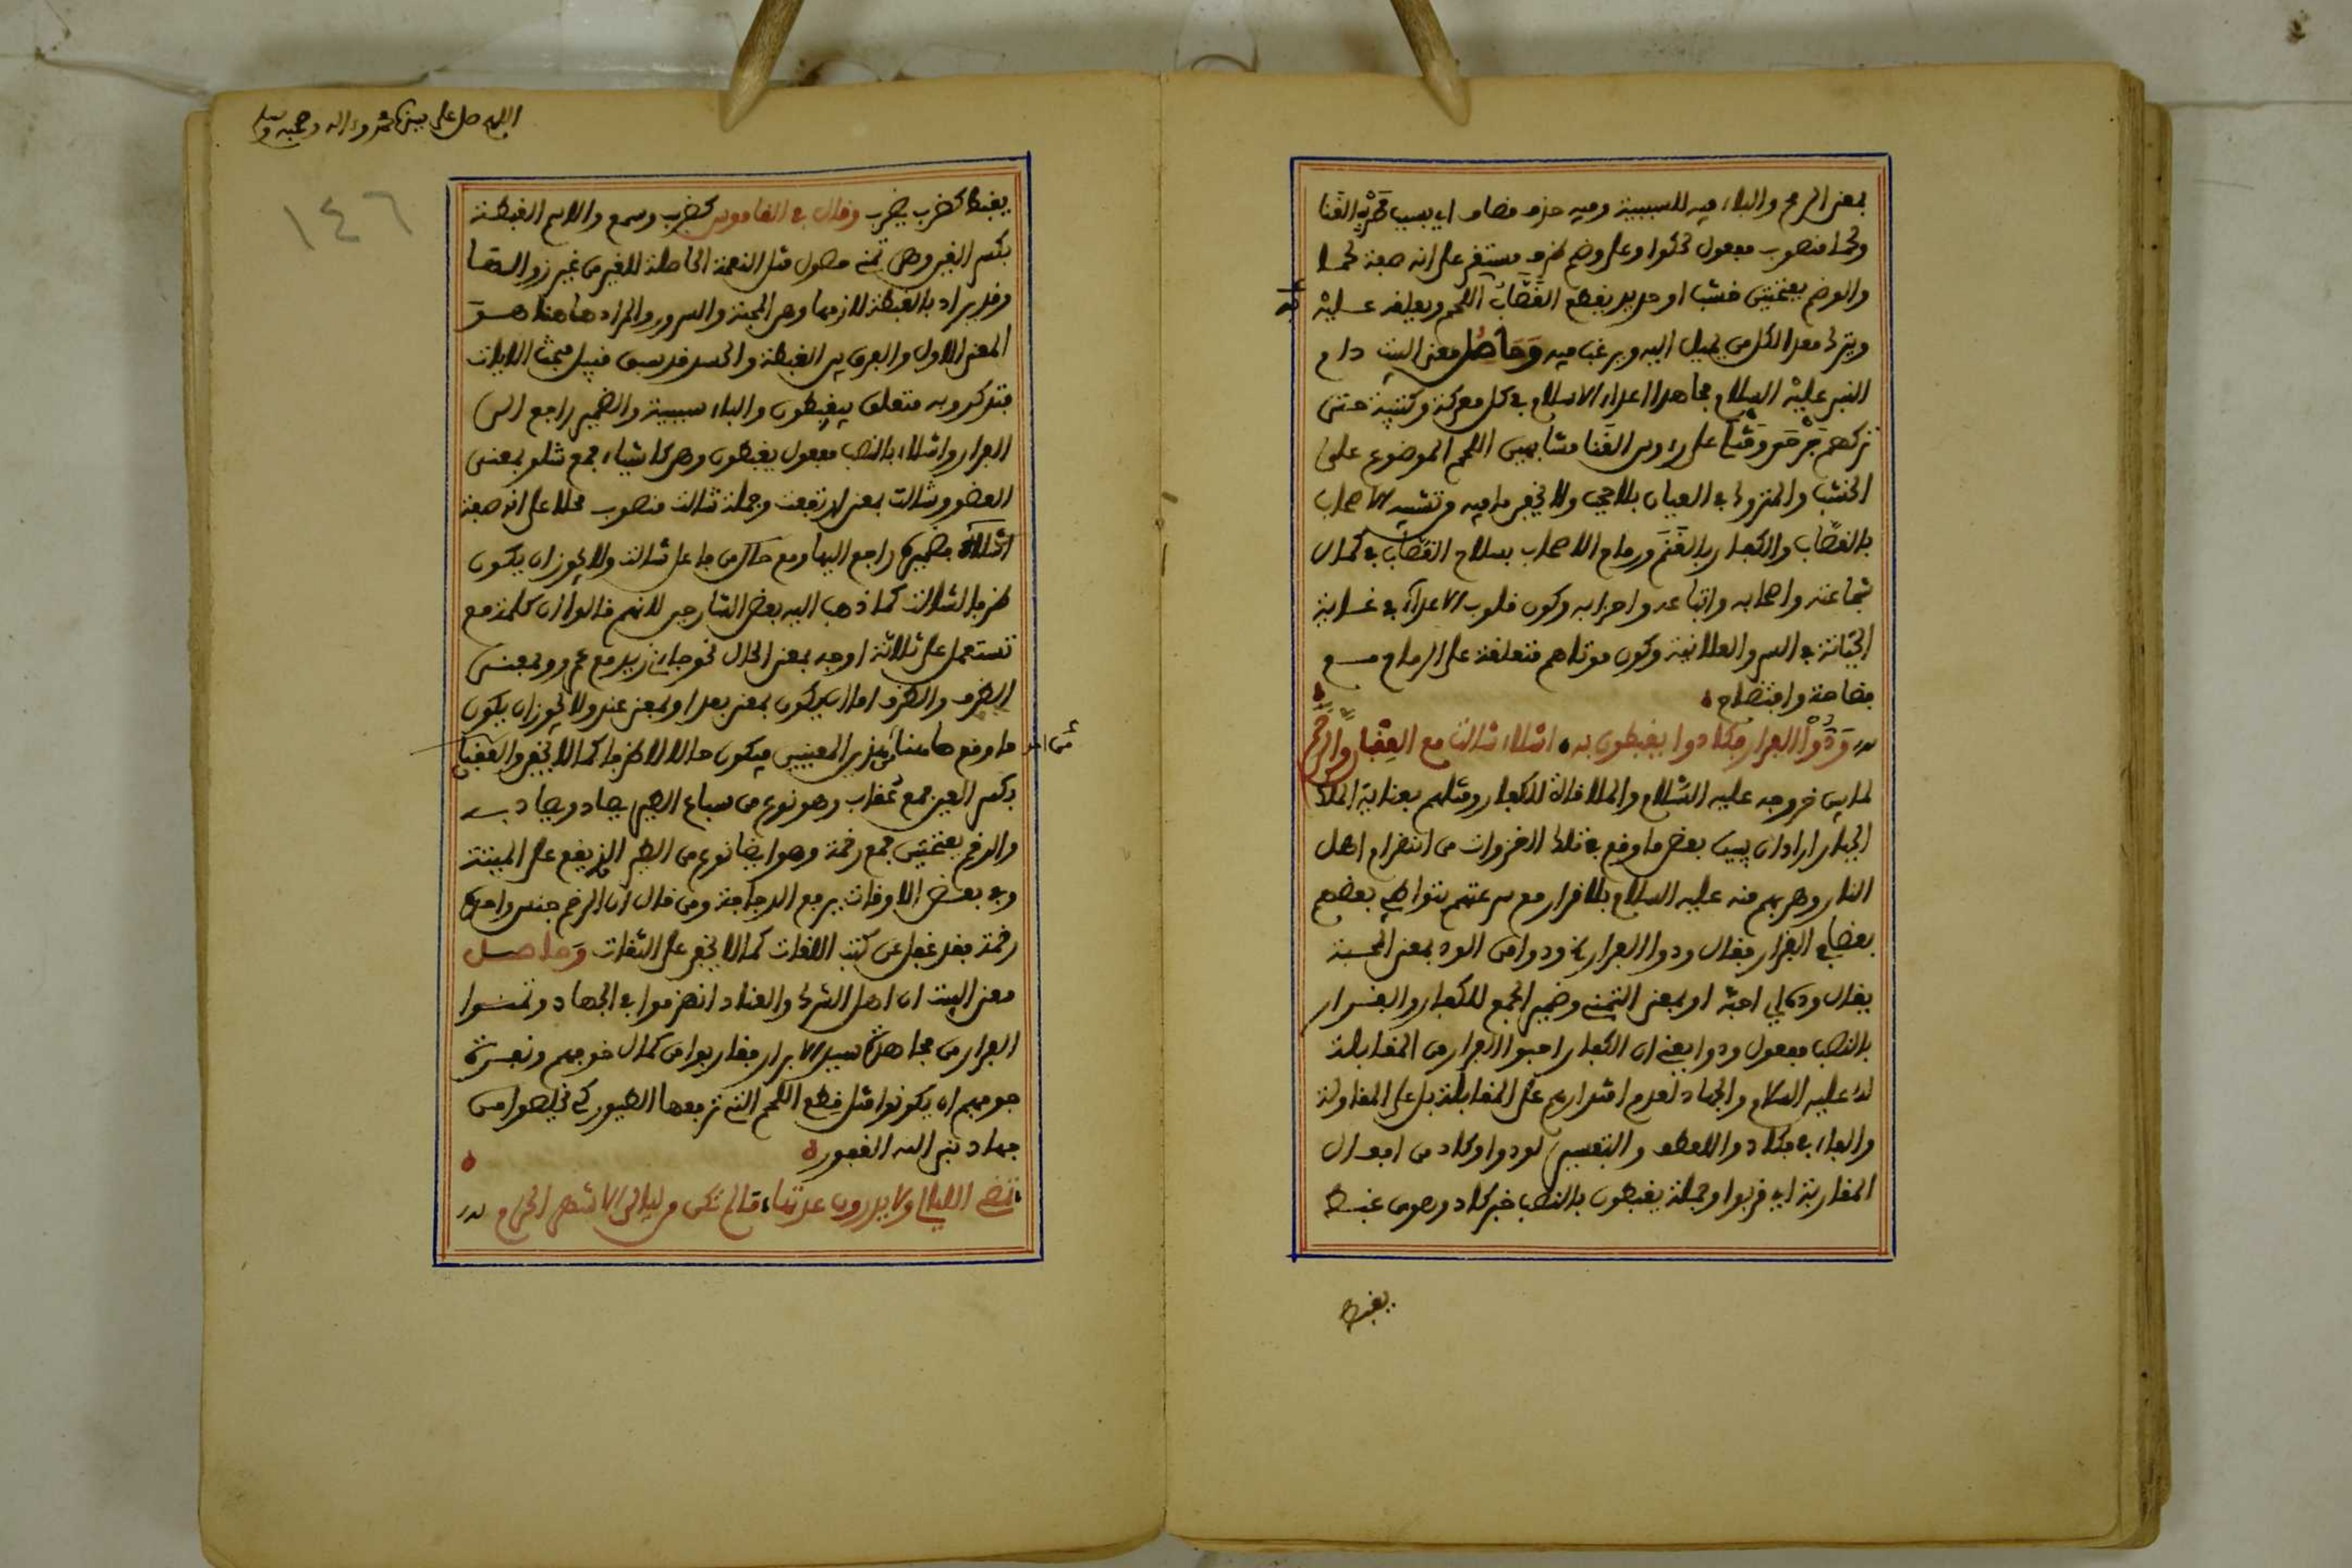 بمعنى الرمح والباء فيه للسببية وفيه حذف مضاف اي بسبب ضرب القنا
ولحما منصوب مفعول لحكوا وعلى وضم ظرف مستقر على انه صفة لحما
والوضم بفتحتين خشبا او حديد يقطع القصاب اللحم ويعلقه عليه
ويترك معد الكل من يميل اليه ويرغب فيه وحاصل معنى البيت دام
النبي عليه السلام مجاهدا اعداء الاسلام في كل معركة وكتيبة حتى
تركهم جرحى وقتلى على رءوس القنا مشابهين اللحم الموضوع على
الخشب والمتروك في العيان بلا حجب ولا يخفى ما فيه من تشبيه الاصحاب
بالقصاب والكفار بالغنم ورماح الاصحاب بسلاح القصاب في كمال
شجاعته واصحابه واتباعه واحزابه وكون قلوب الاعداء في غاية
الخيانة في السر والعلانية وكون موتاهم متعلقة على الرماح مع
فضاحة وافتضاح
ودوا الفرار فكادوا يغبطون به اشلاء شالت مع العقبان والرخم
لما بين خروجه عليه السلام والملاقاة للكفار وقتلهم بعناية الملك
الجبار اراد ان يبين بعض ما وقع في تلك الغزوات من انهزام اهل
النار وهربهم منه عليه السلام بلا قرار مع سرعتهم بتواطي بعضهم
بعضا في الفرار فقال ودوا الفرار اي ودوا من الود بمعنى المحبة
يقال وده اي احبه او بمعنى التمني وضمير الجمع للكفار والفرار
بالنصب مفعول ودوا يعني ان الكفار احبوا الفرار من المقابلة
له عليه السلام والجهاد لعدم اقتدارهم على المقابلة بل على المقاولة
والفاء في فكادوا للعطف والتفسير لودوا وكاد من افعال
المقاربة اي قربوا وجملة يغبطون بالنصب خبر كاد وهو من غبط
يغبط
اللهم صل على سيدنا محمد وءاله وصحبه وسلم
١٤٦
يغبط كضرب يضرب وقال في القاموس كضرب وسمع والاسم الغبطة
بكسر الغين وهي تمني حصول مثل النعمة الحاصلة للغير من غير زوالها
وقد يراد بالغبطة لازمها وهي المحبة والسرور والمراد هاهنا هو
المعنى الاول والفرق بين الغبطة والحسد قد سبق قبيل مبحث الايات
فتذكر وبه متعلق بيغبطون والباء سببية والضمير راجع الى
الفرار واشلاء بالنصب مفعول يغبطون وهي كاشياء جمع شلو بمعنى
العضو وشالت بمعنى ارتفعت وجملة شالت منصوب محلا على انه صفة
اشلاء بضمير راجع اليها ومع حال من فاعل شالت ولا يجوز ان يكون
ظرفا لشالت كما ذهب اليه بعض الشارحين لانهم قالوا ان كلمة مع
تستعمل على ثلاثة اوجه بمعنى الحال نحو جاءني زيد مع عمرو وبمعنى
الظرف والظرف اما ان يكون بمعنى بعد او بمعنى عند ولا يجوز ان يكون
ما وقع هاهنا من هذين المعنيين فيكون حالا لا ظرفا كما لا يخفى والعقبان
بكسر العين جمع عقاب وهو نوع من سباع الطير يصاد ويصاد به
والرخم بفتحتين جمع رخمة وهو ايضا نوع من الطير الذي يقع على الميتة
وفي بعض الاوقات يرفع الدجاجة ومن قال ان الرخم جنس واحده
رخمة فقد غفل عن كتب اللغات كما لا يخفى على الثقات وحاصل
معنى البيت ان اهل الشرك والعناد انهزموا في الجهاد وتمنوا
الفرار من مجاهدة سيد الابرار فقاربوا من كمال خوفهم ونفرة
جوفهم ان يكونوا مثل قطع اللحم التي ترفعها الطيور كي يخلصوا من
جهاد نبي الله الغفور
تمضي الليالي ولا يدرون عدتها ما لم تكن من ليالي الاشهر الحرم